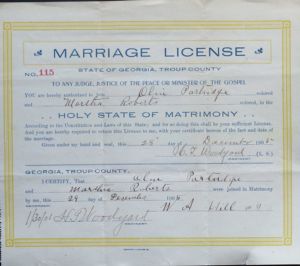 MARRIAGE LICENSE
No. 115
STATE OF GEORGIA, TROUP COUNTY
TO ANY JUDGE, JUSTICE OF THE PEACE OR MINISTER OF THE GOSPEL
YOU are hereby authorized to join Olin Partridge colored
and Martha Roberts colored, in the
HOLY STATE OF MATRIMONY,
According to the Constitution and Laws of this State; and for so doing this shall be your sufficient License.
And you are hereby required to return this License to me, with your certificate hereon of the fact and date of
the marriage.
Given under my hand and seal, this 28 day of December
H. T. Woodyard (L. S.)
GEORGIA, TROUP COUNTY.
I CERTIFY, That Olin Partridge
and Martha Roberts were joined in Matrimony
by me, this 29 day of December
H. T. Woodyard W A Hill